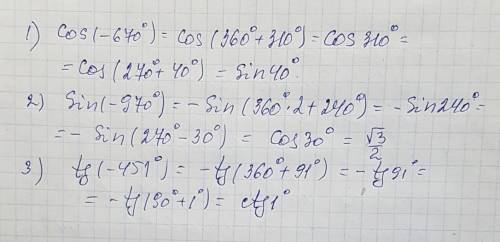 1) Cos(-670°) = Cos(360°+310°) = Cos 310° =
= Cos(270°+40°) = Sin 40°.
2) Sin(-970°) = -Sin(360°·2+240°) = -Sin 240° =
= - Sin(270°-30°) = Cos 30° = √3/2
3) tg(-451°) = -tg(360°+91°) = -tg 91° =
= -tg(90°+1°) = ctg 1°